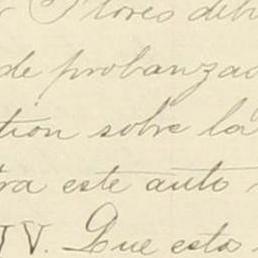 r Flores deb
de probanza
tion sobre la
ra este auto
IV. Que esta